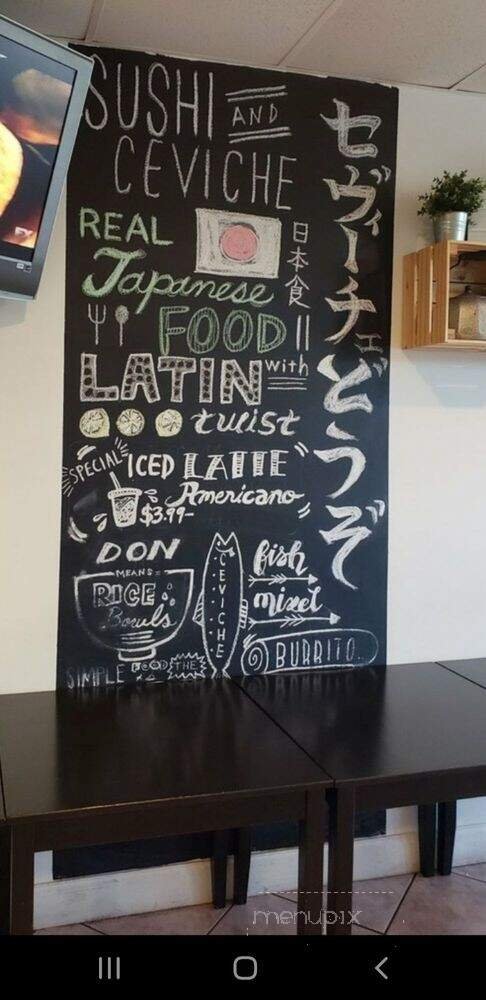 SUSHI AND
CEVICHE
REAL
Japanese
FOOD
LATIN with
twist
日本食
セヴィーチェどうぞ
SPECIAL ICED LATTE
Americano
$3.99-
DON
MEANS
RICE
Bowls
CEVICHE
fish
mixed
BURRITO
SIMPLE FOOD THE
menupix